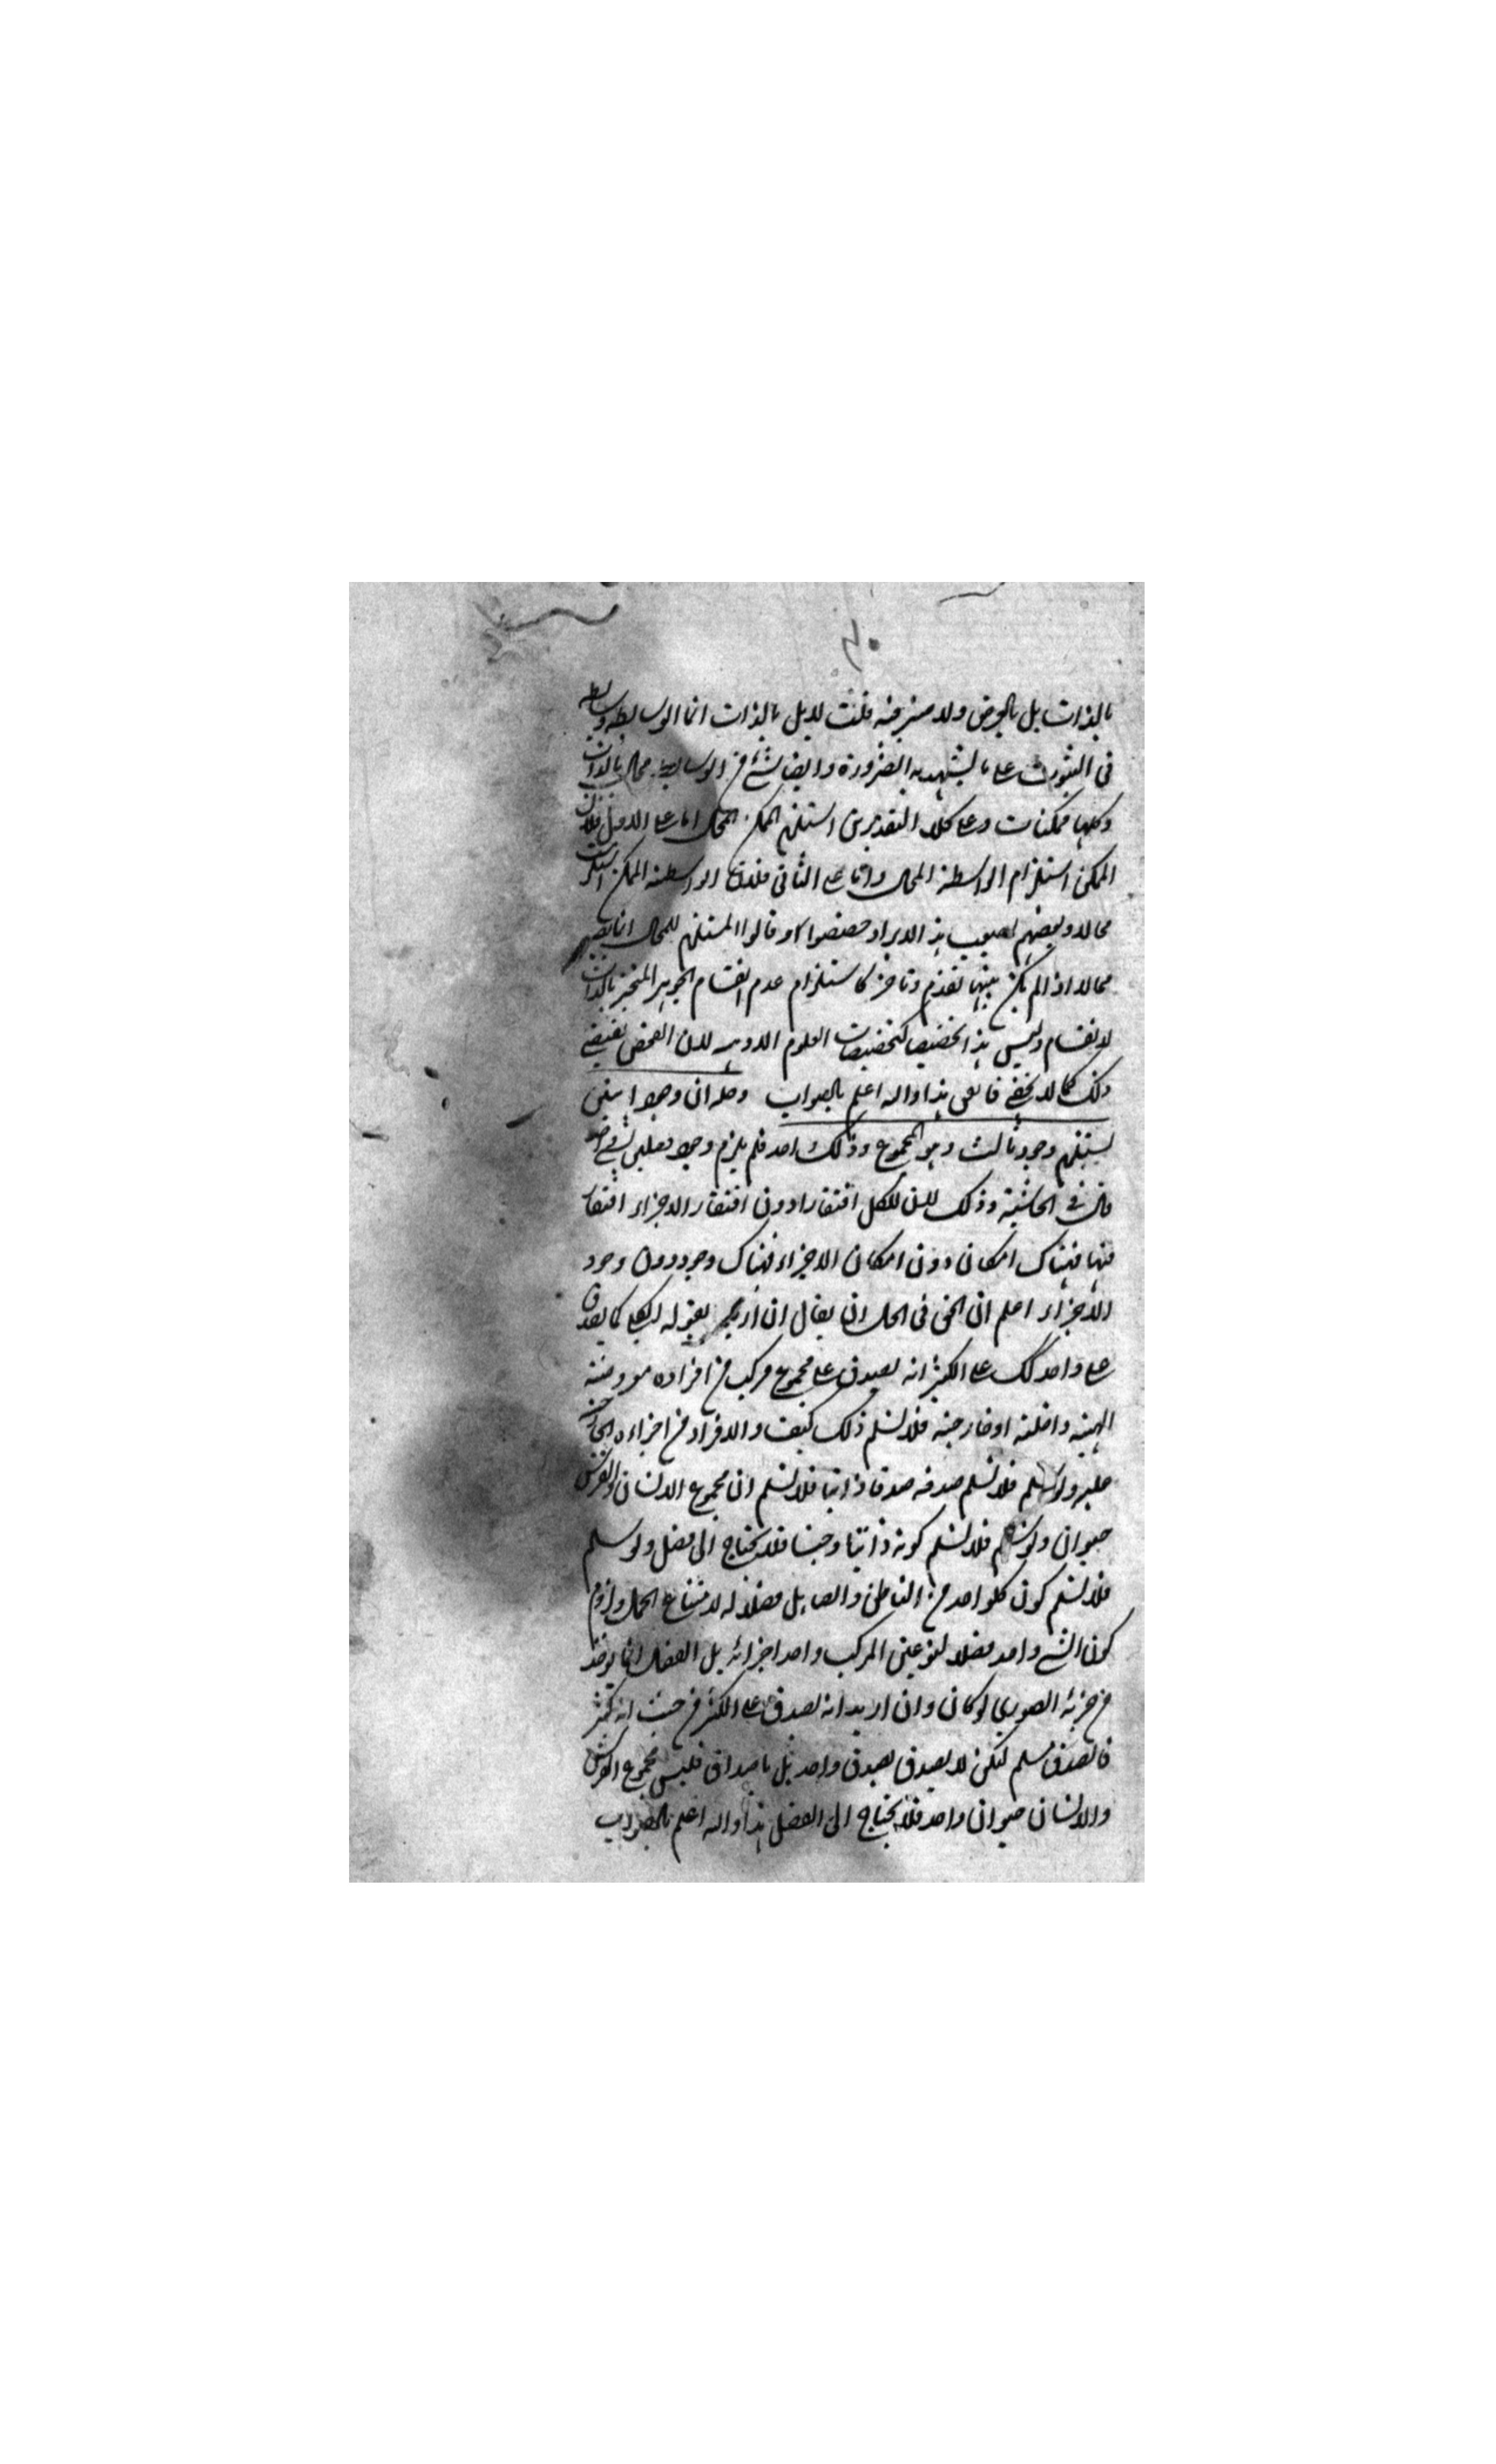 بالذات بل بالعرض ولا ضير فيه قلت لا بل بالذات انما الوسايط وسايط
في الثبوت على ما يشهد به الضرورة وايضا شئ من الوسايط محال بالذات
وكلها ممكنات وعلى كلا التقديرين استلزم الممكن المحال اما على الاول فلان
الممكن استلزام الواسطة المحال واما على الثاني فلان الواسطة الممكن استلزمت
محالا وبعضهم هذا الايراد خصصوا وقالوا المستلزم للمحال انما يصير
محالا اذا لم يكن بينهما تقدم وتاخر كاستلزام عدم انقسام الجوهر المتحيز بالذات
لانقسام وليس هذا تخصيصا كتخصيصات العلوم الادبية لان الفحص يقتضي
ذلك كما لا يخفى هذا والله اعلم بالصواب وحله ان وجود اثنين
يستلزم وجود ثالث وهو المجموع وذلك واحد فلم يلزم وجود فصلين لشئ واحد
قال في الحاشية وذلك لان للكل افتقارا دون افتقار الاجزاء افتقار
فهناك امكان دون امكان الاجزاء فهناك وجود دون وجود
الاجزاء اعلم ان الحق في الحل ان يقال ان اريد بقوله الكلي كما يصدق
على واحد كك على الكثير انه يصدق على مجموع مركب من افراده معروضة
الهيئة داخلة او خارجة فلا نسلم ذلك كيف والافراد من اجزاءه
ولو سلم فلا نسلم صدقه صدقا ذاتيا فلا نسلم ان مجموع الانسان والفرس
حيوان ولو سلم فلا نسلم كونه ذاتيا وجنسا فلا يحتاج الى فصل ولو سلم
فلا نسلم كون كلواحد من الناطق والصاهل فصلا له لامتناع الحمل ولزوم
كون الشئ واحد فصلا لنوعين المركب واحد اجزائه بل الفصل انما يوخذ
من جزئه الصوري لو كان وان اريد انه يصدق على الكثير من حيث انه كثير
فالصدق مسلم لكن لا يصدق بصدق واحد بل باصداق فليس مجموع الفرس
والانسان حيوان واحد فلا يحتاج الى الفصل هذا والله اعلم بالصواب